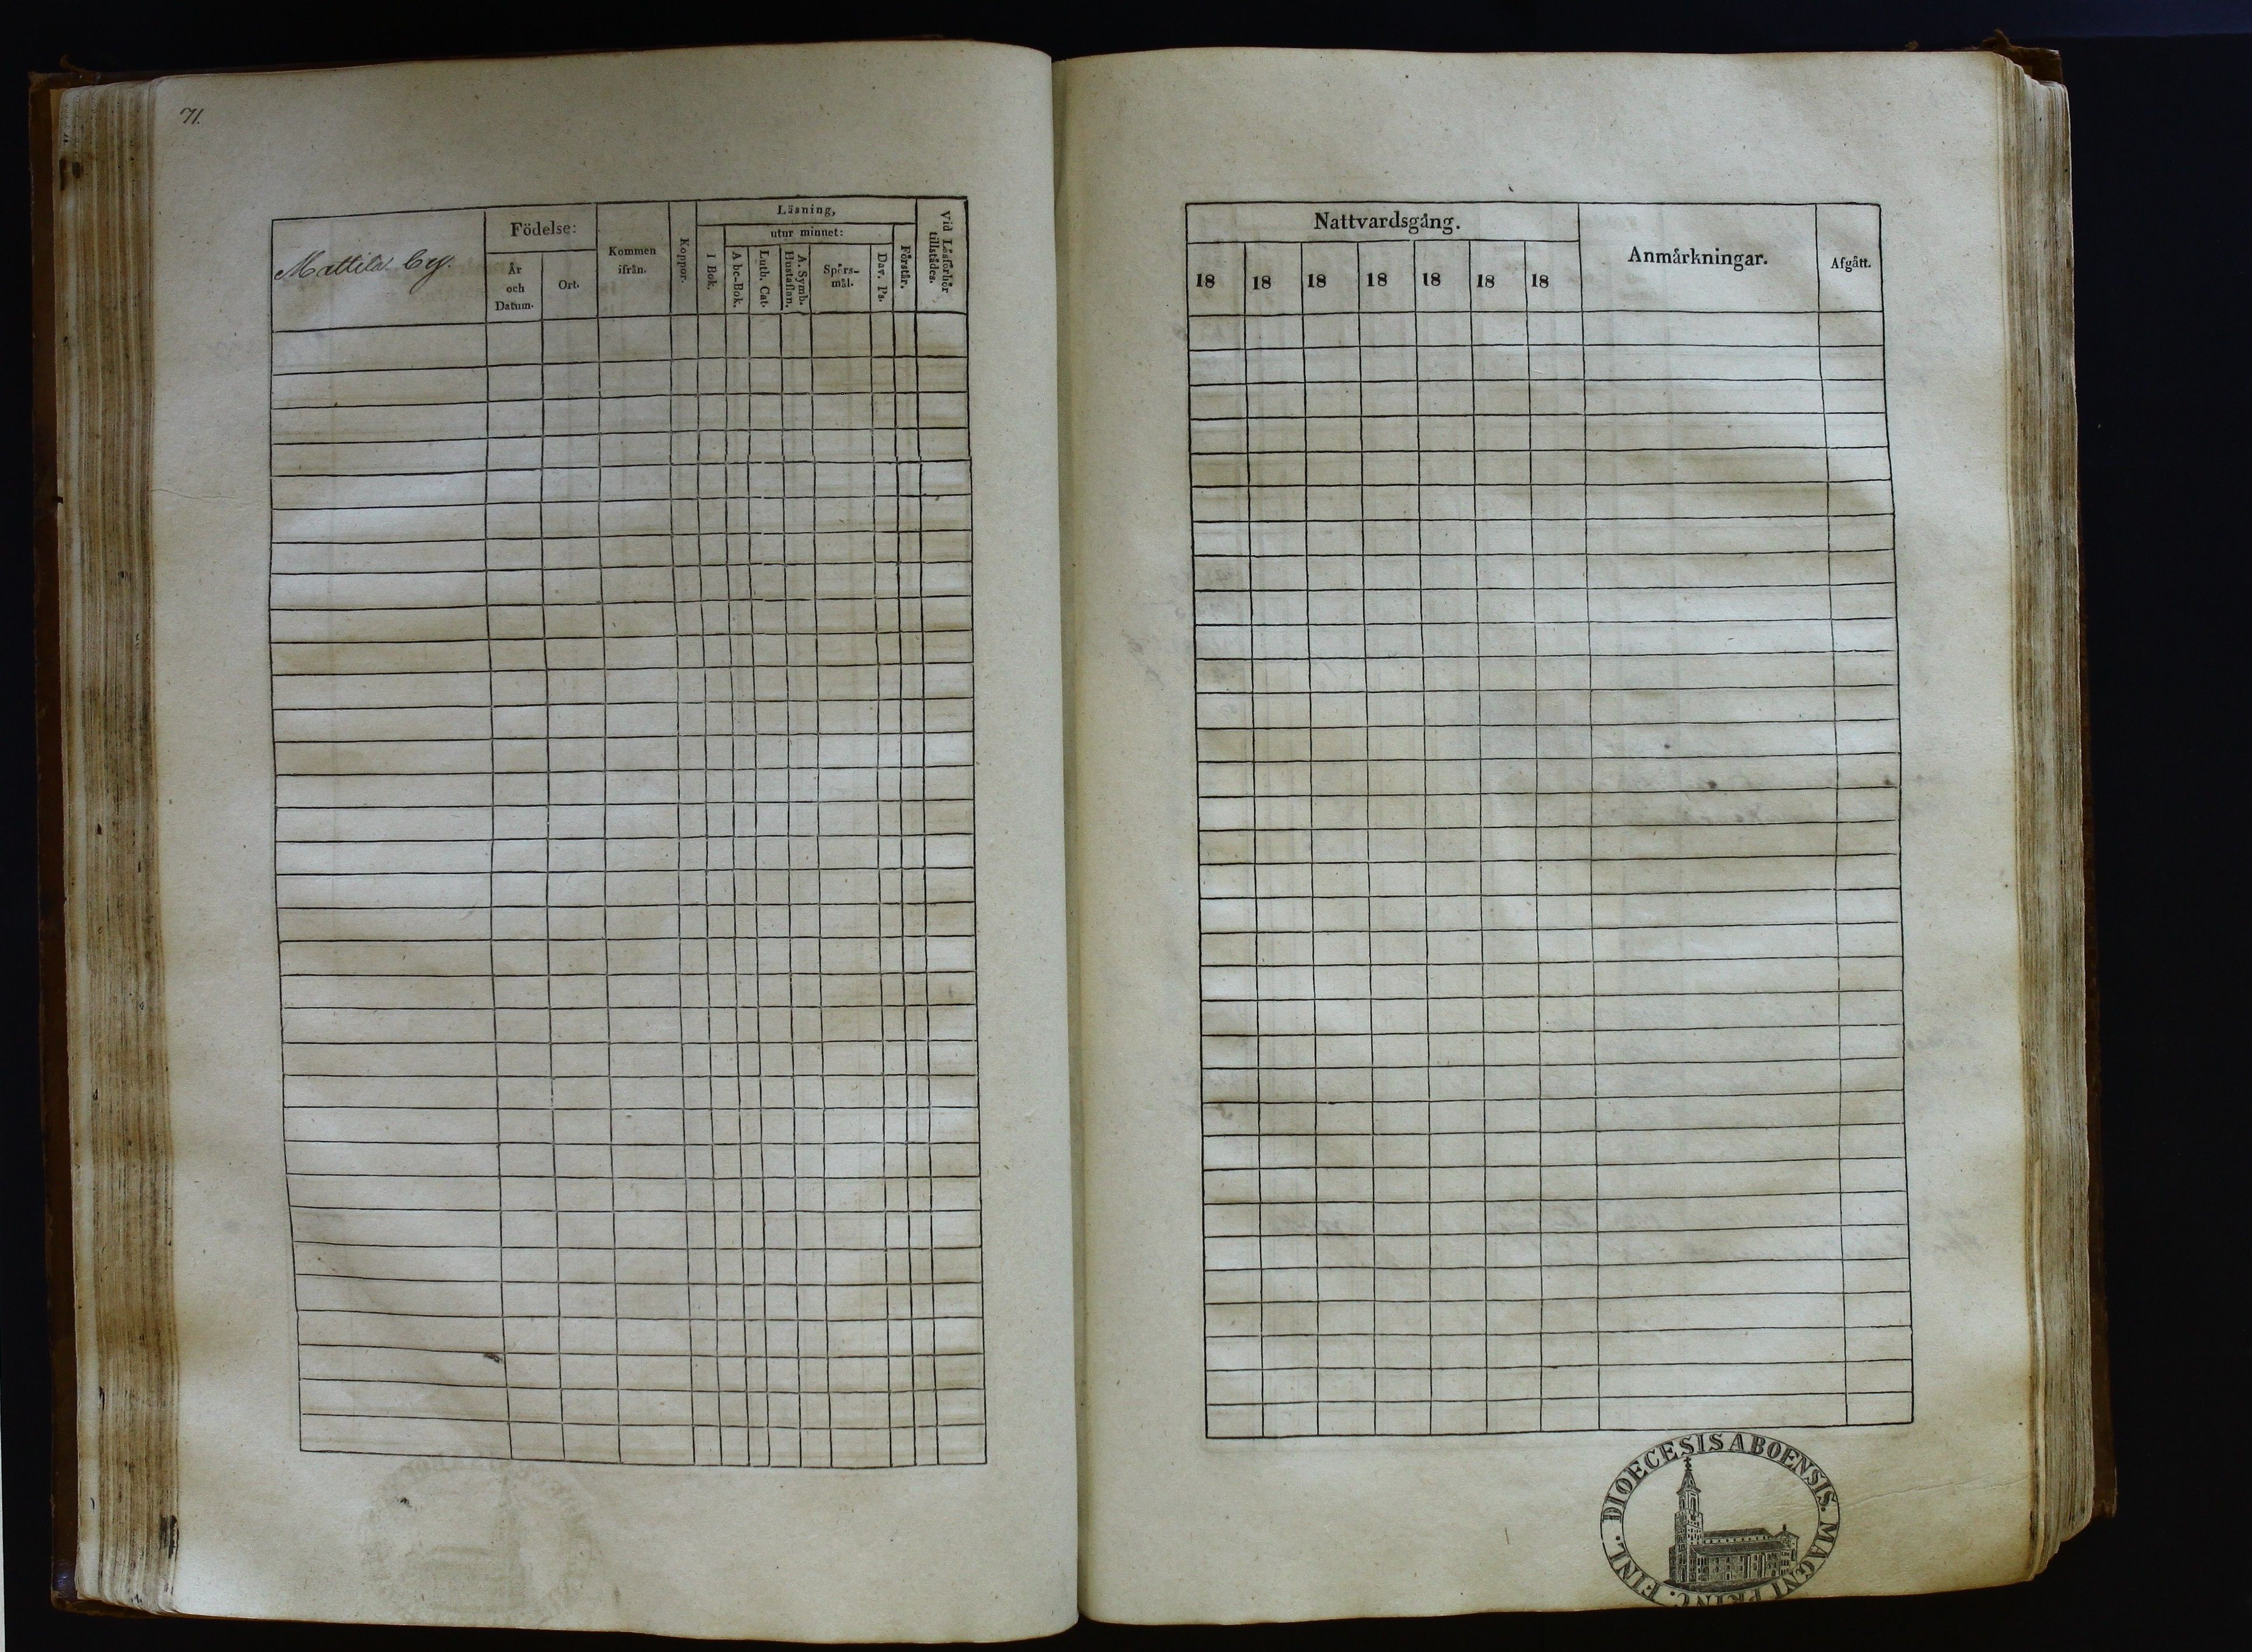 71.
Mattila by.
Födelse:
År
och
Datum.
Ort.
Kommen
ifrån.
Koppor.
Läsning,
I Bok.
utur minnet:
A bc-Bok.
Luth. Cat.
A. Symb.
Hustaflan.
Spörs-
mål.
Dav. Ps.
Förstår.
Vid Läsförhör
tillstädes.
Nattvardsgång.
18 18 18 18 18 18 18
Anmärkningar.
Afgått.
DIOECESIS ABOENSIS. MAGNI PRINC. FINL.